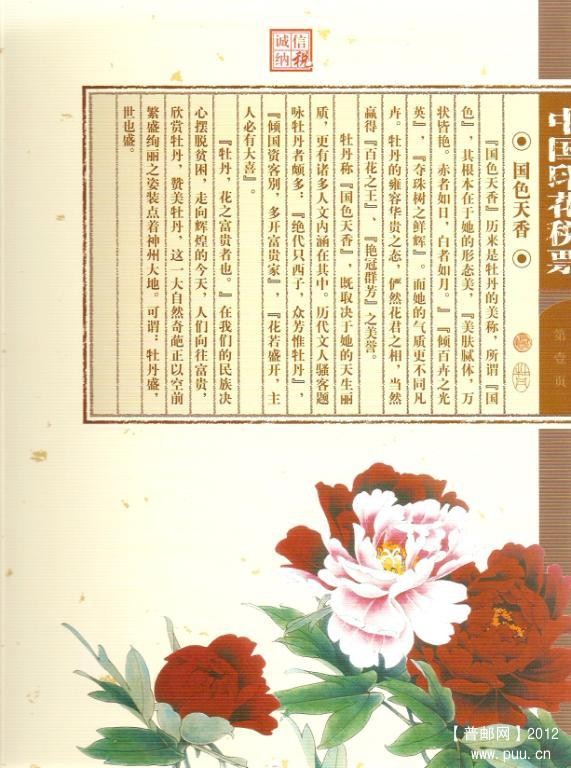 诚信
纳税
中国印花税票
第壹页
国色天香
『国色天香』历来是牡丹的美称，所谓『国
色』，其根本在于她的形态美，『美肤腻体，万
状皆艳。赤者如日，白者如月。』『倾百卉之光
英』，『夺珠树之鲜辉』。而她的气质更不同凡
卉。牡丹的雍容华贵之态，俨然花君之相，当然
赢得『百花之王』、『艳冠群芳』之美誉。
牡丹称『国色天香』，既取决于她的天生丽
质，更有诸多人文内涵在其中。历代文人骚客题
咏牡丹者颇多：『绝代只西子，众芳惟牡丹』，
『倾国资客别，多开富贵家』，『花若盛开，主
人必有大喜』。
『牡丹，花之富贵者也。』在我们的民族决
心摆脱贫困，走向辉煌的今天，人们向往富贵，
欣赏牡丹，赞美牡丹，这一大自然奇葩正以空前
繁盛绚丽之姿装点着神州大地。可谓：牡丹盛，
世也盛。
【普邮网】2012
www.puu.cn